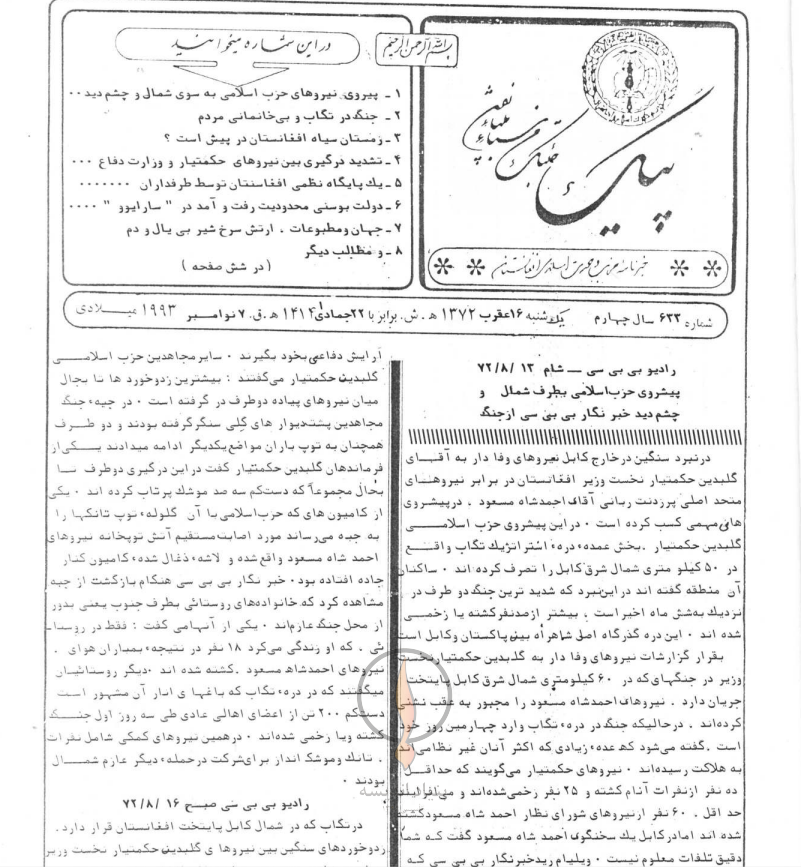 بسم الله الرحمن الرحیم
در این شماره میخوانید
۱ ـ پیروی نیروهای حزب اسلامی به سوی شمال و چشم دید ۰۰
۲ ـ جنگ در تگاب و بی‌خانمانی مردم
۳ ـ زمستان سیاه افغانستان در پیش است ؟
۴ ـ تشدید درگیری بین نیروهای حکمتیار و وزارت دفاع ۰۰۰
۵ ـ یك پایگاه نظمی افغاستنان توسط طرفداران ۰۰۰۰۰۰۰
۶ ـ دولت بوسنی محدودیت رفت و آمد در " سارایوو " ۰۰۰۰
۷ ـ جهان ومطبوعات ، ارتش سرخ شیر بی یال و دم
۸ ـ و مطالب دیگر
( در شش صفحه )
پیک
شماره ۶۲۳ سال چهارم یکشنبه ۱۶ عقرب ۱۳۷۲ ه . ش . برابر با ۲۲ جمادی۱ ۱۴۱۴ ه .ق. ۷ نوامبر ۱۹۹۳ میلادی
رادیو بی بی سی ــ شام ۱۳ /۸/ ۷۲
پیشروی حزب‌اسلامی بطرف شمال و
چشم دید خبر نگار بی بی سی از جنگ
در نبرد سنگین در خارج کابل نیروهای وفا دار به آقــای
گلبدین حکمتیار نخست وزیر افغانستان در برابر نیروهــای
متحد اصلی پرزدنت ربانی آقای احمدشاه مسعود . درپیشروی
های مهمی کسب کرده است ۰ در این پیشروی حزب اسلامـــی
گلبدین حکمتیار .بخش عمدهٔ درهٔ استراتژیك تگاب واقـــع
در ۵۰ کیلو متری شمال شرق کابل را تصرف کرده اند ۰ ساکنان
آن منطقه گفته اند در این‌نبرد که شدید ترین جنگ دو طرف در
نزدیك به‌شش ماه اخیر است . بیشتر از صدنفر کشته یا زخمـی
شده اند ۰ این دره گذرگاه اصلی شاهراه بین پاکستان وکابل است
بقرار گزارشات نیروهای وفا دار به گلبدین حکمتیار نخست
وزیر در جنگهای که در ۶۰ کیلومتری شمال شرق کابل پایتخت
جریان دارد . نیروهای احمدشاه مسعود را مجبور به عقب نشنی
کرده‌اند . درحالیکه جنگ در درهٔ تگاب وارد چهارمین روز خود
است .گفته می‌شود که عدهٔ زیادی که اکثر آنان غیر نظامی‌اند
به هلاکت رسیده‌اند ۰ نیروهای حکمتیار می‌گویند که حداقــل
ده نفر ازنفرات آنام کشته و ۲۵ نفر زخمی‌شده‌اند و می‌افزایند
حد اقل . ۶۰ نفر ازنیروهای شورای نظار احمد شاه مسعودکشته
شده اند امادرکابل یك سخنگوی احمد شاه مسعود گفت کـه شما
دقیق تلفات معلوم نیست ۰ ویلیام رید خبرنگار بی بی سی کـه
آرایش دفاعی بخود بگیرند ۰ سایر مجاهدین حزب اسلامـــی
گلبدین حکمتیار می‌گفتند : بیشترین زدوخورد ها تا بحال
میان نیروهای پیاده دوطرف در گرفته است ۰ در جبههٔ جنگ
مجاهدین پشت‌دیوار های گلی سنگرگرفته بودند و دو طــرف
همچنان به توپ باران مواضع یکدیگر ادامه میدادند یــکی‌از
فرماندهان گلبدین حکمتیار گفت در این درگیری دوطرف تــا
بحال مجموعاً که دست‌کم سه صد موشك پرتاب کرده اند ۰ یکی
از کامیون های که حزب‌اسلامی با آن گلوله‌ٔ توپ تانکها را
به جبهه می‌رساند مورد اصابت مستقیم آتش توپخانه نیروهای
احمد شاه مسعود واقع شده و لاشهٔ ذغال شدهٔ کامیون کنار
جاده افتاده بود ۰ خبر نگار بی بی سی هنگام بازگشت از جبهه
مشاهده کرد که خانوادهای روستائی بطرف جنوب یعنی بدور
از محل جنگ عازم‌اند ۰ یکی از آنهامی گفت : فقط در روستا
ئی . که او زندگی می‌کرد ۱۸ نفر در نتیجهٔ بمباران هوای .
نیروهای احمدشاه مسعود .کشته شده اند ۰دیگر روستائیان
میگفتند که در درهٔ تگاب که باغهـا ی انار آن مشهور اســت
دست‌کم ۲۰۰ تن از اعضای اهالی عادی طی سه روز اول جنــگ
کشته ویا زخمی شده‌اند ۰ درهمین نیروهای کمکی شامل نفرات
. تانك وموشك انداز برای‌شرکت درحملهٔ دیگر عازم شمــال
بودند ۰
رادیو بی بی سی صبــح ۱۶ /۸/ ۷۲
درتگاب که در شمال کابل پایتخت افغانستان قرار دارد .
زدوخوردهای سنگین بین نیروها ی گلبدین حکمتیار نخست وزیر